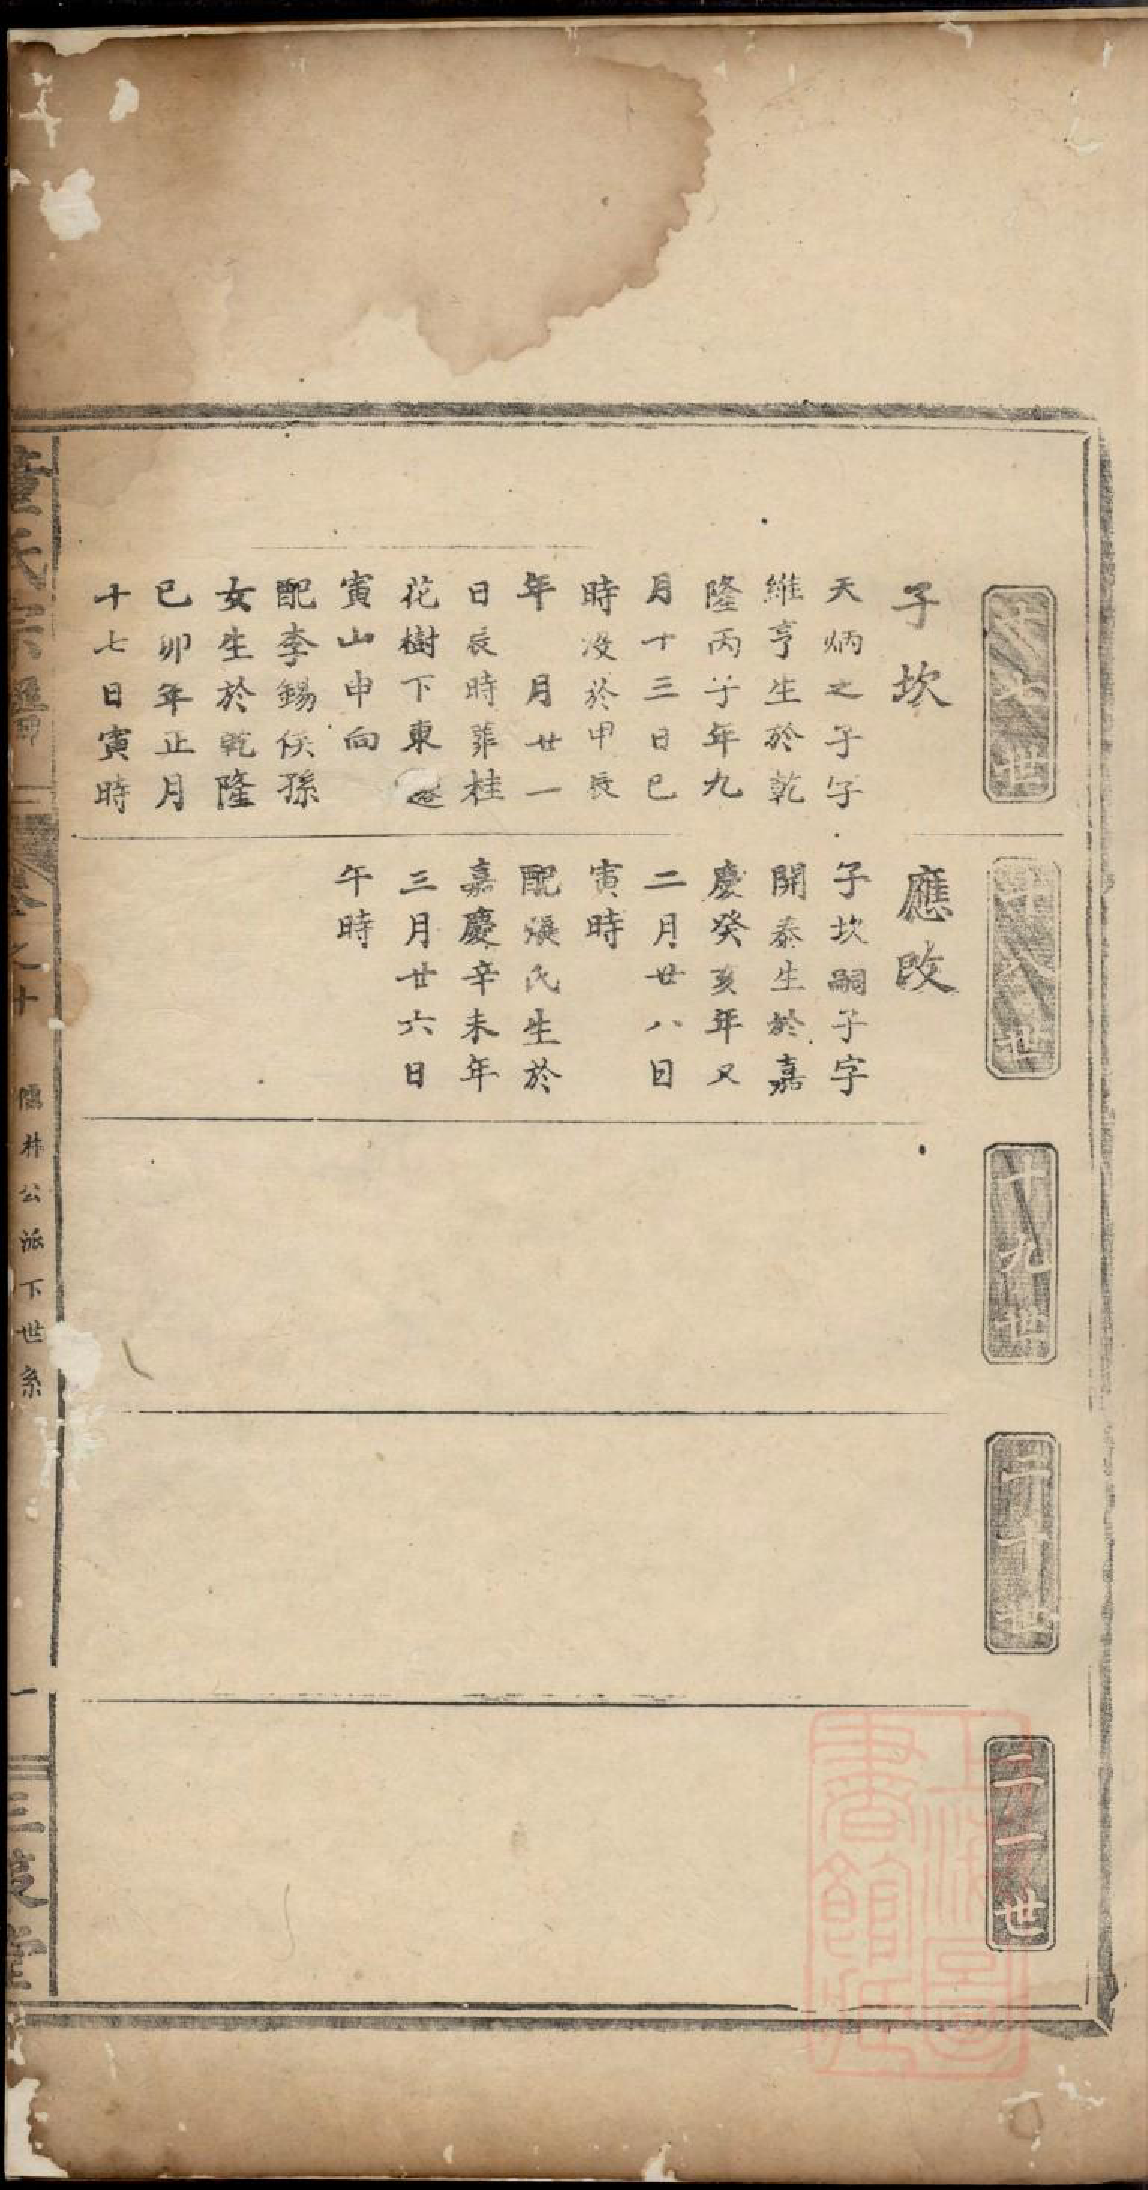 十七世
子坎
天炳之子字
維亨生於乾
隆丙子年九
月十三日巳
時没於甲辰
年 月廿一
日辰時葬桂
花樹下東
寅山申向
配李錫侯孫
女生於乾隆
己卯年正月
十七日寅時
十八世
應改
子坎嗣子字
開泰生於嘉
慶癸亥年又
二月廿八日
寅時
配張氏生於
嘉慶辛未年
三月廿六日
午時
十九世
二十世
二一世
董氏宗譜
卷之十
公派下世系
一
三 堂
上海圖
書館藏